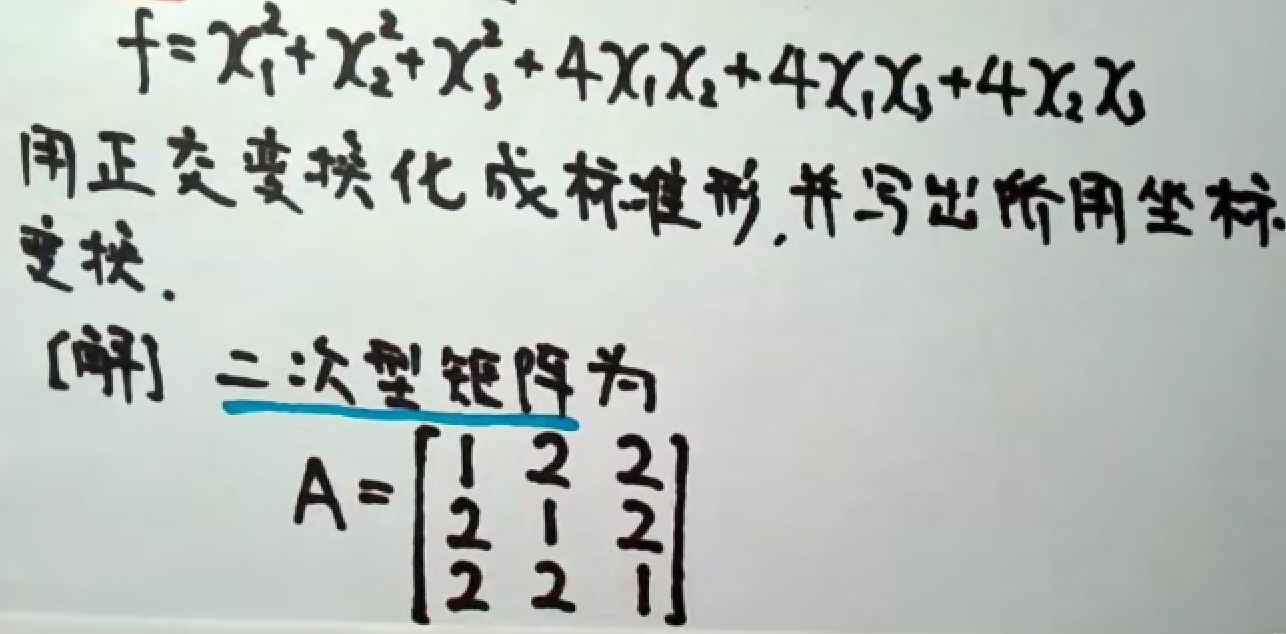 f=x₁²+x₂²+x₃²+4x₁x₂+4x₁x₃+4x₂x₃
用正交变换化成标准形,并写出所用坐标
变换.
[解] 二次型矩阵为
A=[1 2 2
2 1 2
2 2 1]